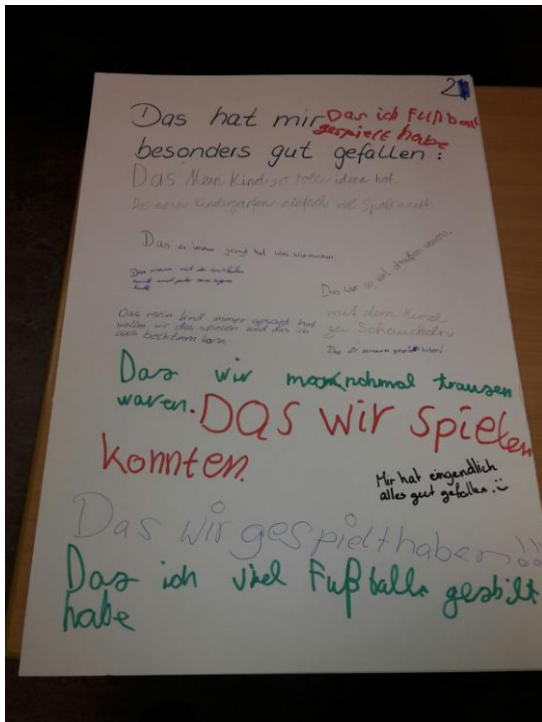 2
Das hat mir
besonders gut gefallen:
Das ich Fußball
gespielt habe
Das Mein Kind so tolle ideen hat.
Das meine Kindergarten einfach viel Spaß macht.
Das er immer gesagt hat was wir machen
Das wir so viel draußen waren.
Das mein Kind immer gesagt hat
wollen wir das spielen und das ich
auch bestimm kann.
mit dem Kind
zu Schauckeln
Das wir manchmal trausen
waren.
DAS wir spielen
konnten.
Mir hat eingendlich
alles gut gefallen.
Das wir gespielt haben!!!
Das ich viel Fußballe gesbilt
habe